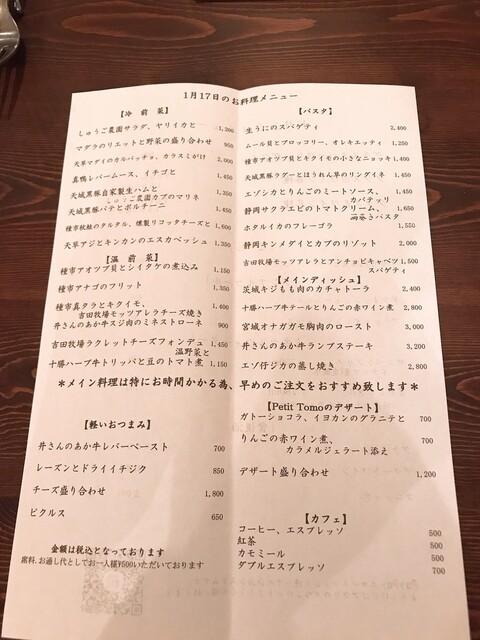 1月17日のお料理メニュー
【冷 前 菜】
しゅうご農園サラダ、ヤリイカと 1,200
マグラのリエットと野菜の盛り合わせ 950
天草マダイのカルパッチョ、カラスミがけ 2,000
真鴨レバームース、イチゴと 1,450
天城黒豚自家製生ハムと 1,350
しゅうご農園カブのマリネ
天城黒豚パテとポルチーニ 1,450
種市秋鮭のタルタル、燻製リコッタチーズと 1,600
天草アジとキンカンのエスカベッシュ 1,350
【温 前 菜】
種市アオツブ貝とシイタケの煮込み 1,150
種市アナゴのフリット 1,350
種市真タラとキクイモ、 1,400
吉田牧場モッツアレラチーズ焼き
井さんのあか牛スジ肉のミネストローネ 900
吉田牧場ラクレットチーズフォンデュ 1,450
温野菜と
十勝ハーブ牛トリッパと豆のトマト煮 1,150
【パスタ】
生うにのスパゲティ 2,400
ムール貝とブロッコリー、オレキエッティ 1,250
種市アオツブ貝とキクイモの小さなニョッキ 1,400
天城黒豚ラグーとほうれん草のリングイネ 1,450
エゾシカとりんごのミートソース、 1,450
カバテッリ
静岡サクラエビのトマトクリーム、 1,650
両巻きパスタ
ホタルイカのフレーゴラ 1,550
静岡キンメダイとカブのリゾット 2,000
吉田牧場モッツアレラとアンチョビキャベツ 1,500
スパゲティ
【メインディッシュ】
茨城キジもも肉のカチャトーラ 2,400
十勝ハーブ牛テールとりんごの赤ワイン煮 2,800
宮城オナガガモ胸肉のロースト 3,000
井さんのあか牛ランプステーキ 3,200
エゾ仔ジカの蒸し焼き 2,800
＊メイン料理は特にお時間かかる為、早めのご注文をおすすめ致します＊
【軽いおつまみ】
井さんのあか牛レバーペースト 700
レーズンとドライイチジク 850
チーズ盛り合わせ 1,800
ピクルス 650
金額は税込となっております
席料、お通し代としてお一人様¥500いただいております
【Petit Tomoのデザート】
ガトーショコラ、イヨカンのグラニテと 700
りんごの赤ワイン煮、 700
カラメルジェラート添え
デザート盛り合わせ 1,200
【カフェ】
コーヒー、エスプレッソ 500
紅茶 500
カモミール 500
ダブルエスプレッソ 700